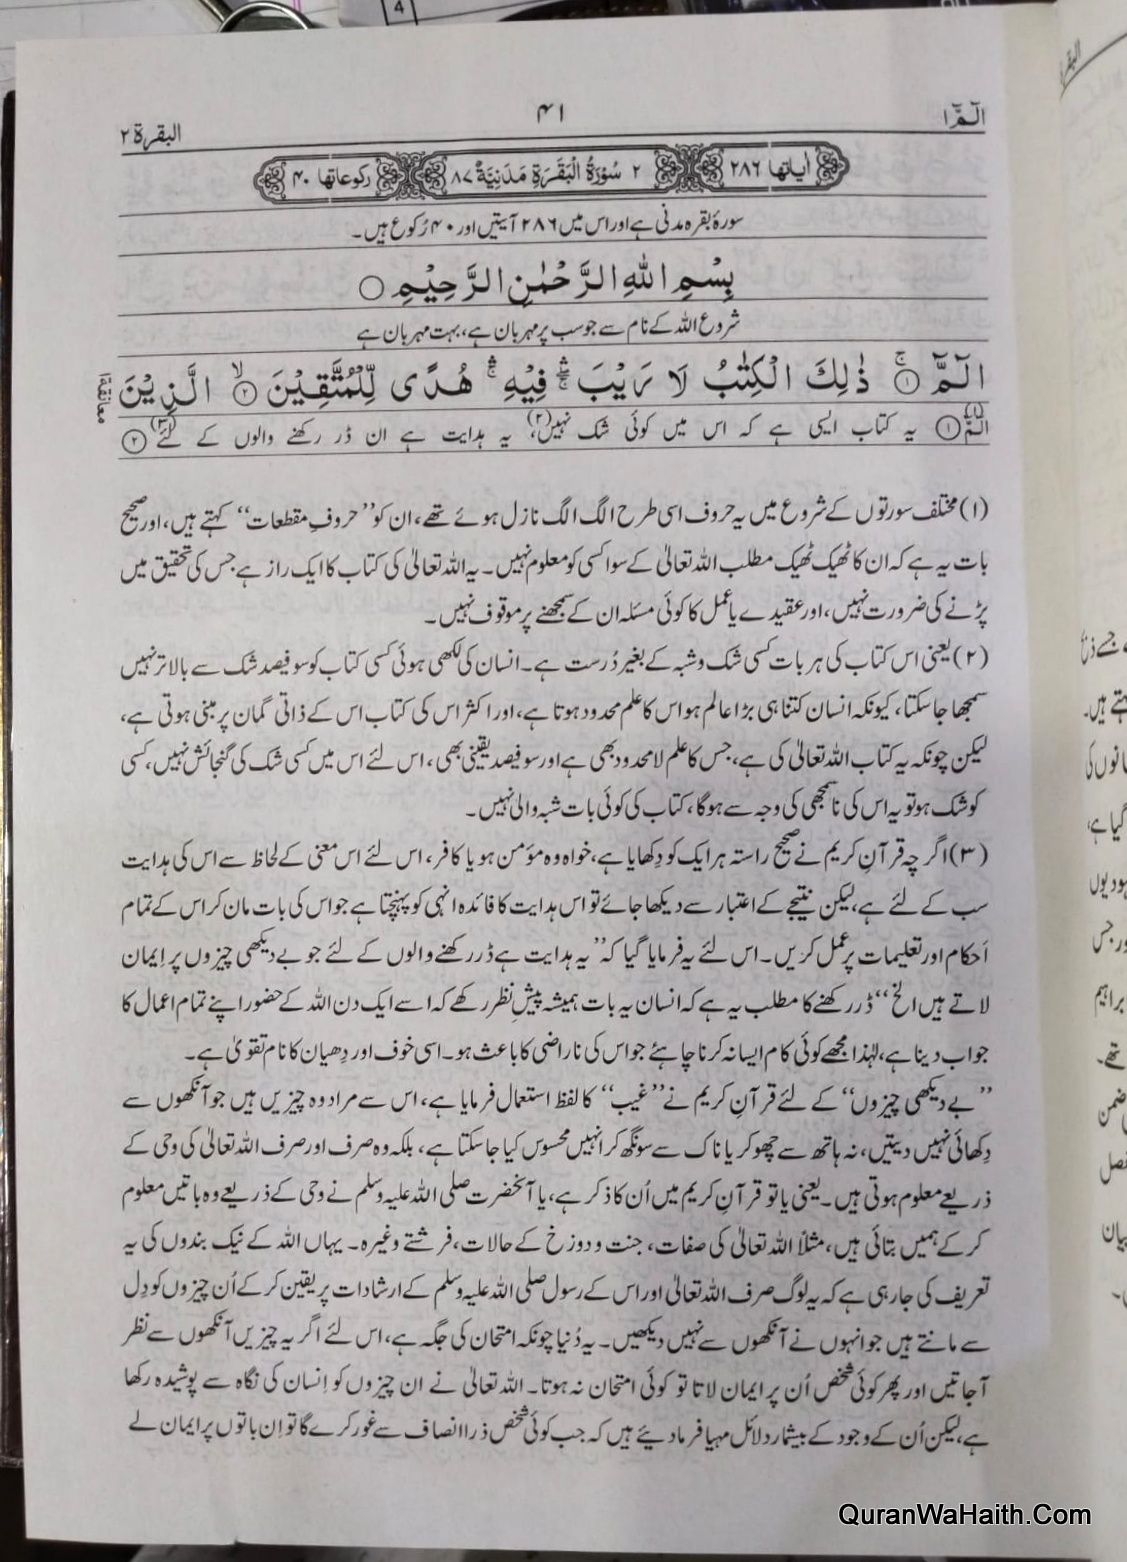 4
الٓمّٓ ۱
۴۱
البقرة ۲
اٰیاتها ۲۸۶
۲ سُوْرَةُ الْبَقَرَةِ مَدَنِیَّةٌ ۸۷
رکوعاتها ۴۰
سورۂ بقرہ مدنی ہے اور اس میں ۲۸۶ آیتیں اور ۴۰ رُکوع ہیں۔
بِسْمِ اللّٰهِ الرَّحْمٰنِ الرَّحِیْمِ ○
شروع اللہ کے نام سے جو سب پر مہربان ہے، بہت مہربان ہے
الٓمّٓ ۚ﴿۱﴾ ذٰلِكَ الْكِتٰبُ لَا رَیْبَ ۛۚ فِیْهِ ۛۚ هُدًى لِّلْمُتَّقِیْنَ ۙ﴿۲﴾ الَّذِیْنَ
معانقة ۱
الٓمّٓ(۱) ﴿۱﴾ یہ کتاب ایسی ہے کہ اس میں کوئی شک نہیں(۲)، یہ ہدایت ہے ان ڈر رکھنے والوں کے لئے(۳) ﴿۲﴾
(۱) مختلف سورتوں کے شروع میں یہ حروف اسی طرح الگ الگ نازل ہوئے تھے، ان کو ’’حروفِ مقطعات‘‘ کہتے ہیں، اور صحیح
بات یہ ہے کہ ان کا ٹھیک ٹھیک مطلب اللہ تعالیٰ کے سوا کسی کو معلوم نہیں۔ یہ اللہ تعالیٰ کی کتاب کا ایک راز ہے جس کی تحقیق میں
پڑنے کی ضرورت نہیں، اور عقیدے یا عمل کا کوئی مسئلہ ان کے سمجھنے پر موقوف نہیں۔
(۲) یعنی اس کتاب کی ہر بات کسی شک و شبہ کے بغیر دُرست ہے۔ انسان کی لکھی ہوئی کسی کتاب کو سو فیصد شک سے بالاتر نہیں
سمجھا جا سکتا، کیونکہ انسان کتنا ہی بڑا عالم ہو اس کا علم محدود ہوتا ہے، اور اکثر اس کی کتاب اس کے ذاتی گمان پر مبنی ہوتی ہے،
لیکن چونکہ یہ کتاب اللہ تعالیٰ کی ہے، جس کا علم لامحدود بھی ہے اور سو فیصد یقینی بھی، اس لئے اس میں کسی شک کی گنجائش نہیں، کسی
کو شک ہو تو یہ اس کی ناسمجھی کی وجہ سے ہوگا، کتاب کی کوئی بات شبہ والی نہیں۔
(۳) اگرچہ قرآنِ کریم نے صحیح راستہ ہر ایک کو دِکھایا ہے، خواہ وہ مؤمن ہو یا کافر، اس لئے اس معنی کے لحاظ سے اس کی ہدایت
سب کے لئے ہے، لیکن نتیجے کے اعتبار سے دیکھا جائے تو اس ہدایت کا فائدہ انہی کو پہنچتا ہے جو اس کی بات مان کر اس کے تمام
اَحکام اور تعلیمات پر عمل کریں۔ اس لئے یہ فرمایا گیا کہ ’’یہ ہدایت ہے ڈر رکھنے والوں کے لئے جو بے دیکھی چیزوں پر اِیمان
لاتے ہیں الخ‘‘ ڈر رکھنے کا مطلب یہ ہے کہ انسان یہ بات ہمیشہ پیشِ نظر رکھے کہ اسے ایک دن اللہ کے حضور اپنے تمام اعمال کا
جواب دینا ہے، لہٰذا مجھے کوئی کام ایسا نہ کرنا چاہئے جو اس کی ناراضی کا باعث ہو۔ اسی خوف اور دِھیان کا نام تقویٰ ہے۔
’’بے دیکھی چیزوں‘‘ کے لئے قرآنِ کریم نے ’’غیب‘‘ کا لفظ استعمال فرمایا ہے، اس سے مراد وہ چیزیں ہیں جو آنکھوں سے
دِکھائی نہیں دیتیں، نہ ہاتھ سے چھو کر یا ناک سے سونگھ کر انہیں محسوس کیا جا سکتا ہے، بلکہ وہ صرف اور صرف اللہ تعالیٰ کی وحی کے
ذریعے معلوم ہوتی ہیں۔ یعنی یا تو قرآنِ کریم میں اُن کا ذکر ہے، یا آنحضرت صلی اللہ علیہ وسلم نے وحی کے ذریعے وہ باتیں معلوم
کر کے ہمیں بتائی ہیں، مثلاً اللہ تعالیٰ کی صفات، جنت و دوزخ کے حالات، فرشتے وغیرہ۔ یہاں اللہ کے نیک بندوں کی یہ
تعریف کی جا رہی ہے کہ یہ لوگ صرف اللہ تعالیٰ اور اس کے رسول صلی اللہ علیہ وسلم کے ارشادات پر یقین کر کے اُن چیزوں کو دِل
سے مانتے ہیں جو انہوں نے آنکھوں سے نہیں دیکھیں۔ یہ دُنیا چونکہ امتحان کی جگہ ہے، اس لئے اگر یہ چیزیں آنکھوں سے نظر
آجاتیں اور پھر کوئی شخص اُن پر ایمان لاتا تو کوئی امتحان نہ ہوتا۔ اللہ تعالیٰ نے ان چیزوں کو اِنسان کی نگاہ سے پوشیدہ رکھا
ہے، لیکن اُن کے وجود کے بیشمار دلائل مہیا فرما دیئے ہیں کہ جب کوئی شخص ذرا انصاف سے غور کرے گا تو اِن باتوں پر ایمان لے
QuranWaHaith.Com